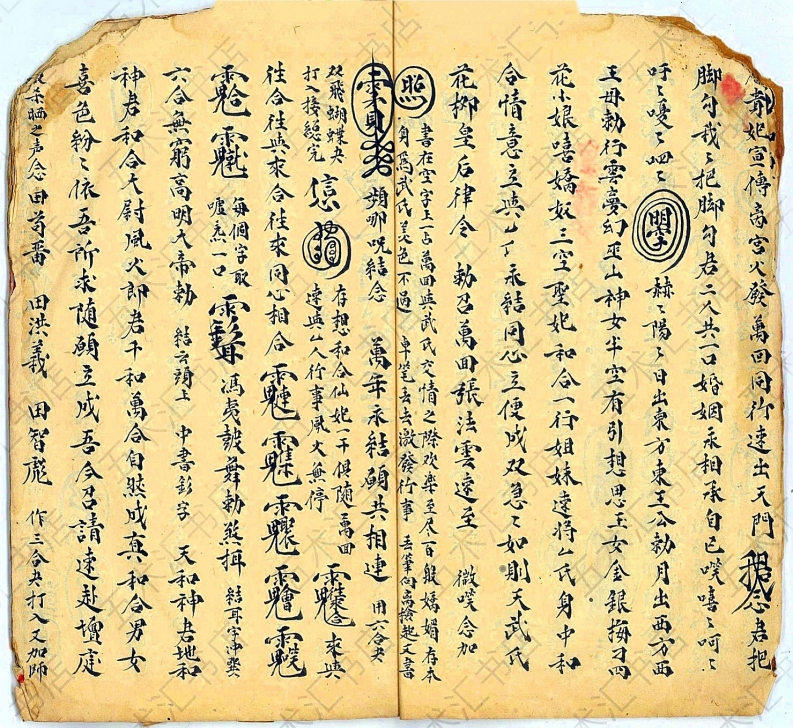 貴妃宣傳离宮火發萬回同行速出天門 君把
脚勾我〻把脚勾君二人共一口婚姻永相承自己咲嘻〻呵〻
吁〻嗄〻呬〻 赫〻陽〻日出東方東王公勅月出西方西
王母勅行雲夢幻巫山神女半空有引想思玉女金銀梅刁四
花小娘嘻嬌奴三空聖妃和合一行姐妹速將厶氏身中和
合情意立與厶丁永結同心立便成双急〻如則天武氏
花柳皇后律令 勅召萬回張法雲速至 微咲念加
書在空字上一占萬回與武氏交情之際欢樂至尽百般嬌媚存本
身爲武氏美色不過 卓笔去去激發行事 丢筆向
頻哪呪結念 萬年永結願共相連 用六合夬
双飛蝴蝶夬 存想和合仙妃一千俱隨萬回
打入接総完 速與厶人行事風火無停 來與
徃合徃與來合徃來同心相合
每個字取
嘘炁一口 馮夷鼓舞勅煞揖 結耳字冲
六合無窮高明大帝勅 結云頭上 中書彭字 天和神君地和
神君和合大尉風火郎君千和萬合自然成真和合男女
喜色紛〻依吾所求隨願立成吾今召請速赴壇庭
之声念田苟畨 田洪義 田智彪 作三合夬打入又加師